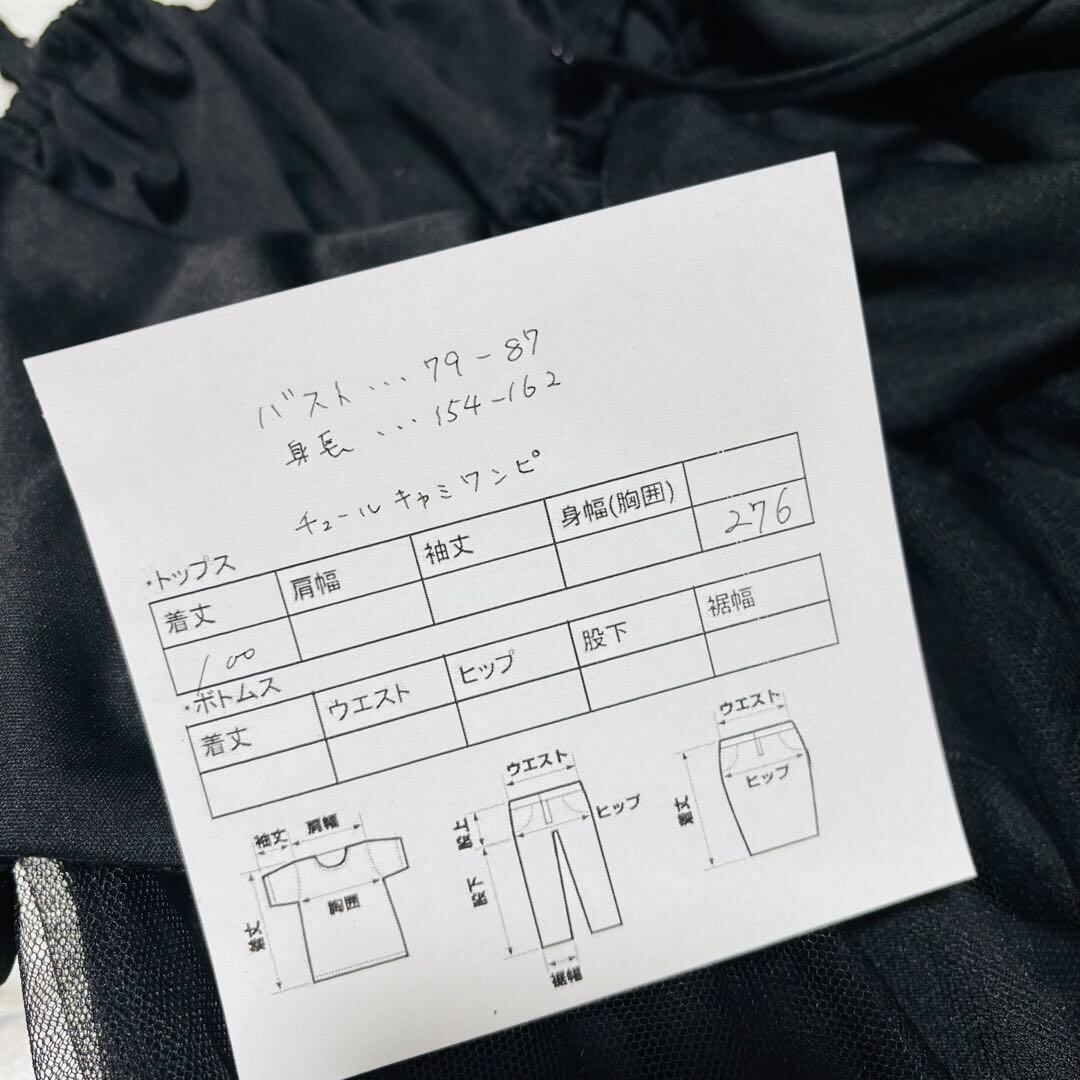 バスト...79-87
身長...154-162
チュールキャミワンピ
・トップス
着丈 肩幅 袖丈 身幅(胸囲)
100 276
・ボトムス
着丈 ウエスト ヒップ 股下 裾幅
袖丈 肩幅
胸囲
着丈
ウエスト
ヒップ
股上
股下
裾幅
ウエスト
ヒップ
着丈